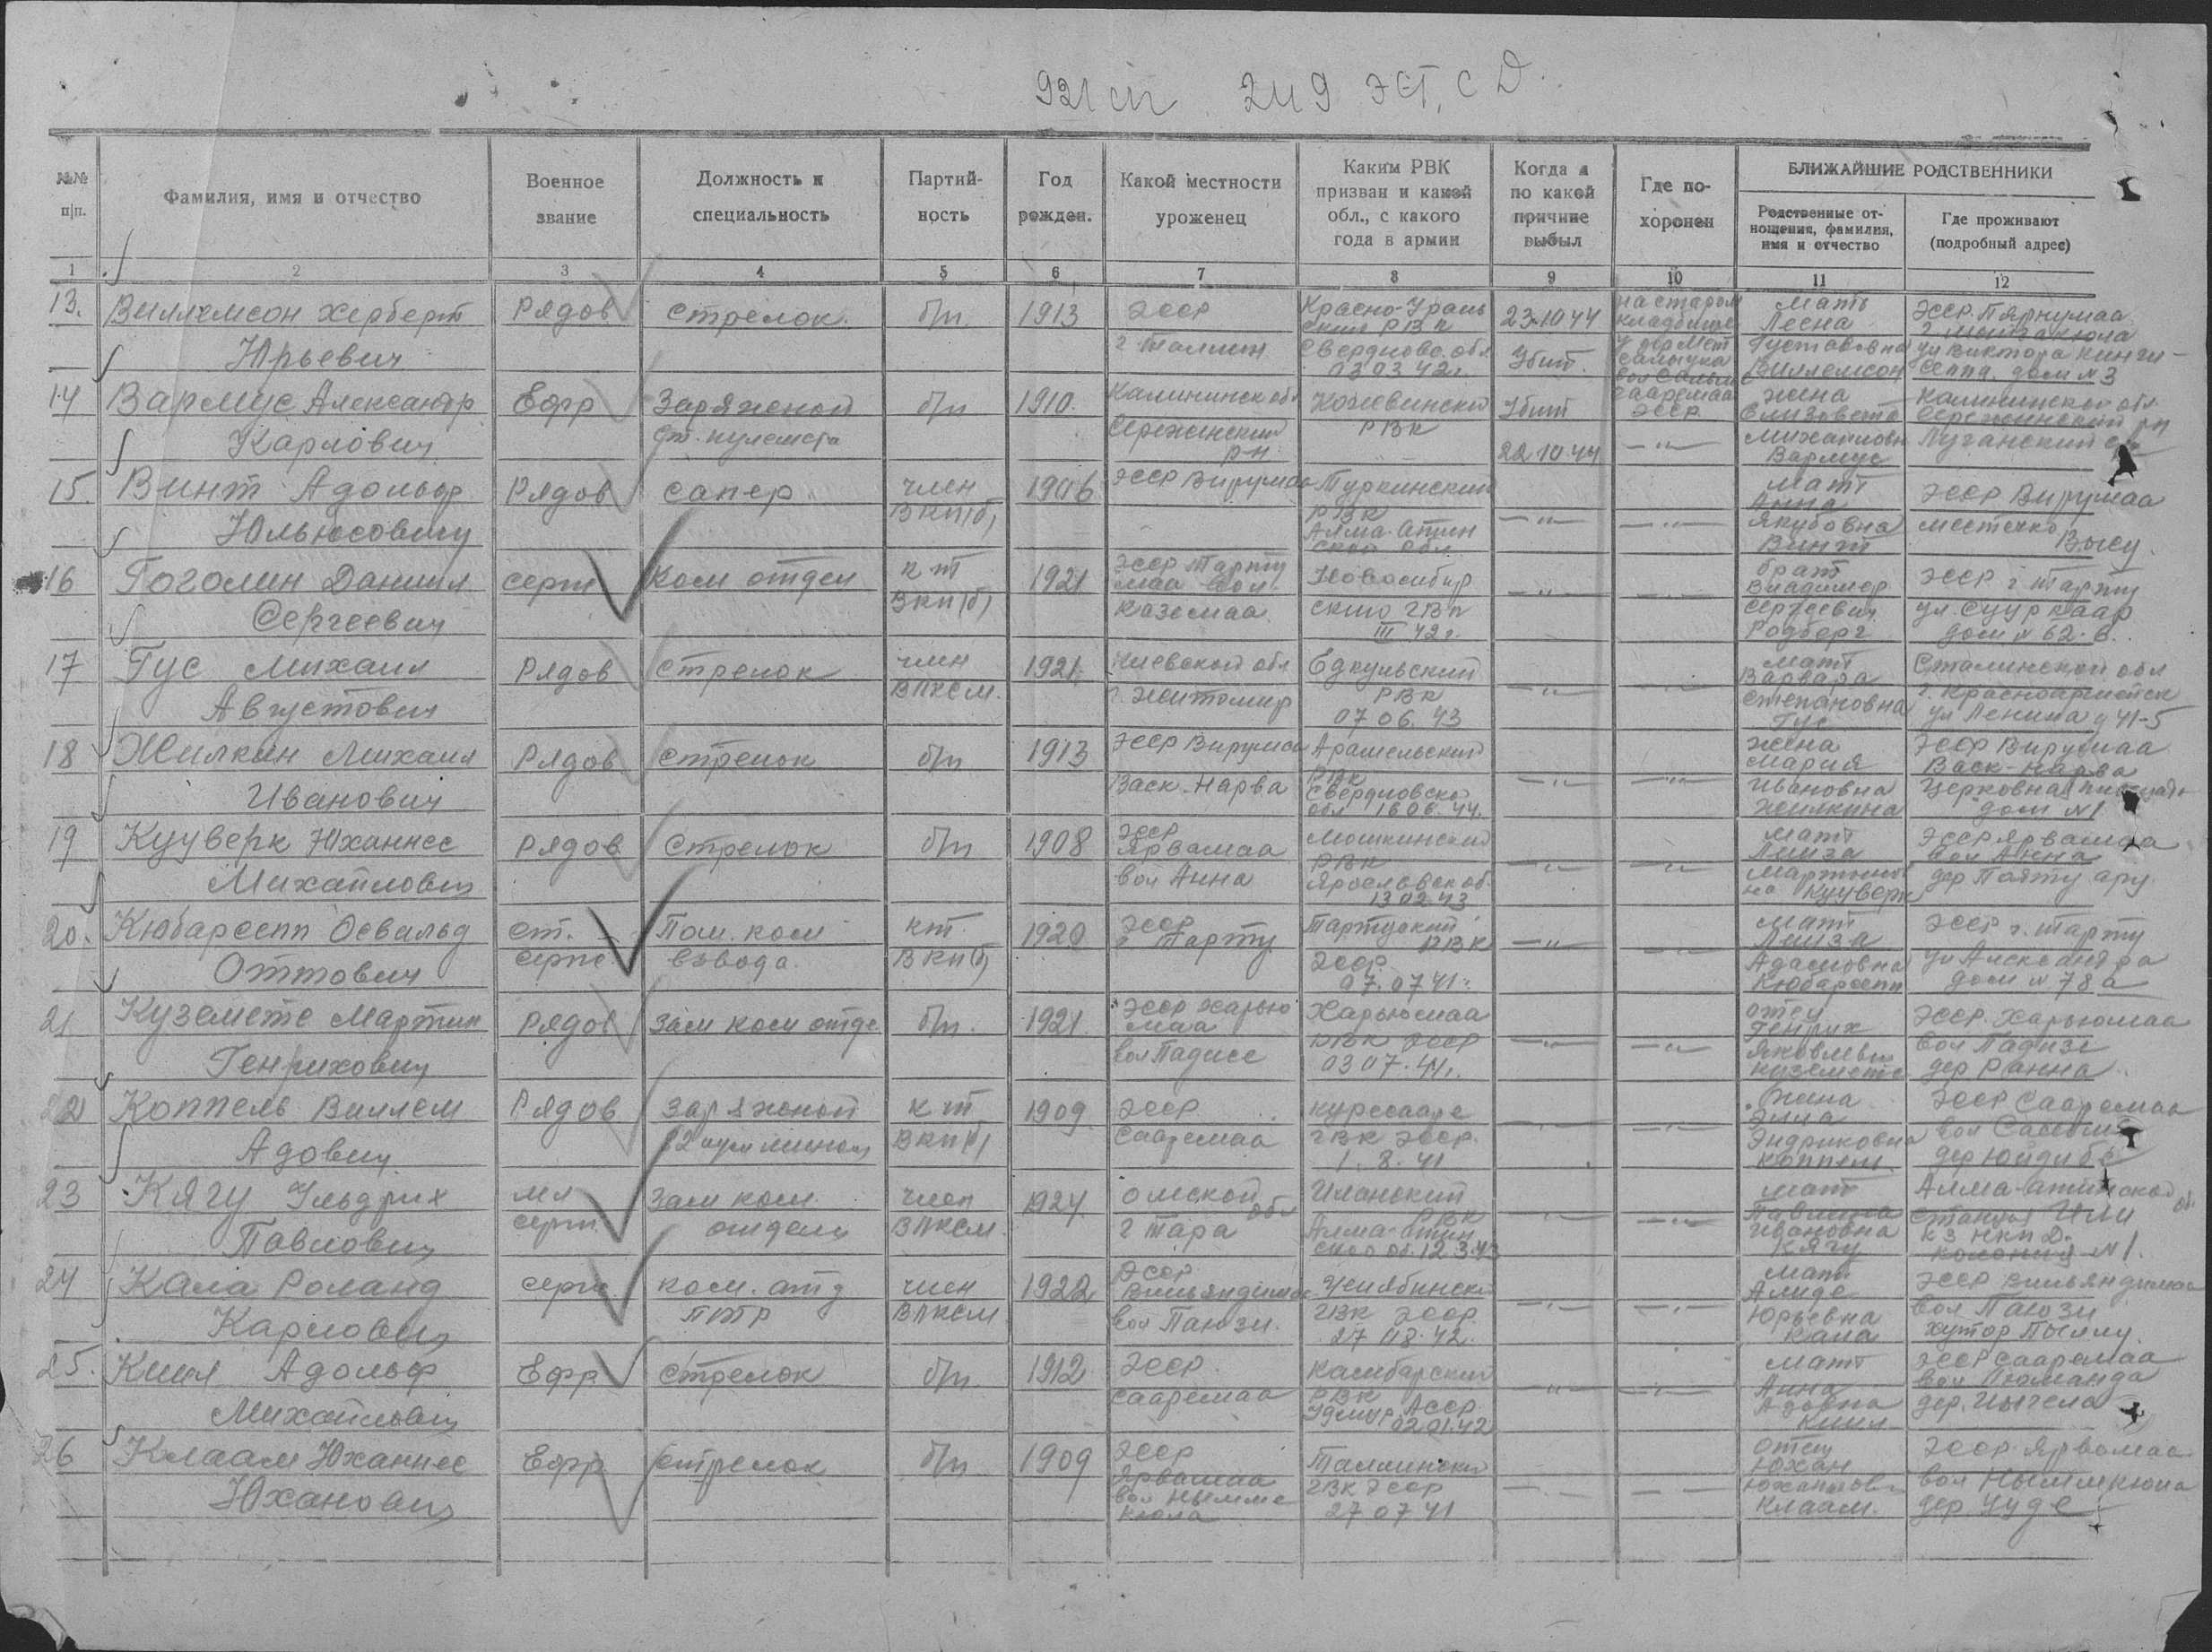 921 сп 249 эст. с д.
№№ п|п.
Фамилия, имя и отчество
Военное звание
Должность и специальность
Партий-ность
Год рожден.
Какой местности уроженец
Каким РВК призван и какой обл., с какого года в армии
Когда и по какой причине выбыл
Где по-хоронен
БЛИЖАЙШИЕ РОДСТВЕННИКИ
Родственные от-ношения, фамилия, имя и отчество
Где проживают (подробный адрес)
1 2 3 4 5 6 7 8 9 10 11 12
13. Виллемсон Херберт Рядов Стрелок б/п 1913 ЭССР Красно-Ураль 23.10.44 на старом Мать ЭССР. Пярнумаа
Юрьевич г Таллин ский РВК Убит. кладбище Густавовна
Свердлово. обл Виллемсон ул Виктора Кинги-
03 03 42г. сеппа. дом №3
14 Вармус Александр Ефр Заряженой б/п 1910. Калининск обл Кожевински Убит Сааремаа жена Калининской обл
Карлович ст. пулемета РВК 22 10.44 ЭССР Елизовета
р-н —"— Михайловн
Вармус
15. Винт Адольф Рядов сапер член 1906 ЭССР Вирумаа Туркинский Мат ЭССР Вирумаа
Юльюсовичу ВКП(б) РВК —"— —"— Анна местечко
Алма-Атин Якубовна Высу.
ской обл Винт
16 Гоголин Даниил серж Ком отдел к т 1921 ЭССР Тарту Новосибир брат ЭССР г Тарту
Сергеевич ВКП(б) маа вол. ский ГВК —"— —"— Владимер ул. Суур каар
Каземаа. III 42г. Сергеевич дом № 62-б.
Родберг
17 Гус Михаил Рядов Стрелок член 1921. Киевской обл Едкульский Мат Сталинской обл
Августович ВЛКСМ. г. Житомир РВК —"— —"— Варвара г. Красноармейск
07 06. 43 Степановна ул Ленина д 41-5
Гус
18 Жилкин Михаил Рядов Стрелок б/п 1913 ЭССР Вирумаа Арамельский жена ЭССР Вирумаа
Иванович Васк-Нарва РВК —"— —"— Мария Васк-Нарва
Свердловско Ивановна Церковная
обл 16 06. 44. Жилкина дом №1
19 Кууверк Юханнес Рядов Стрелок б/п 1908 ЭССР Мошкинский мат ЭССР Ярвамаа
Михайлович Ярвамаа РВК —"— —"— Лииза вол Анна
вол Анна Яросльвск об. Мартынов дер Пояту ару.
13 02.43 на Куувери
20. Кюбарсепп Освальд ст. Пом. ком кт. 1920 ЭССР Тартуский мат ЭССР г. Тарту
Оттович серж взвода. ВКП(б) г Тарту РВК —"— —"— Лииза ул Александра
ЭССР Адамовна дом № 78а
07.07 41г. Кюбарсепп
21 Куземете Мартин Рядов Зам ком отде б/п. 1921. ЭССР Харью Харьюмаа отец ЭССР. Харьюмаа
Генрихович маа РВК ЭССР —"— —"— Генрих вол Падизе
вол Падисе 03 07. 41г. Яковлевич дер Ранна.
Куземете
22 Коппель Виллем Рядов заряженой к т 1909 ЭССР курессааре жена ЭССР Сааремаа
Адович 82 мм мином ВКП(б) Сааремаа ГВК ЭССР. —"— —"— Элла вол
1. 8. 41 Эндриковна дер
Коппель
23 Кягу Ульдрих мл Зам ком член 1924 Омской обл Иланский мат Алма-атинской об.
Павлович серж. отделе ВЛКСМ. г Тара РВК —"— —"— Павлина станция Или
Алма-атин Ивановна кз нкп д.
ской об. 12 3.43 Кягу колония №1.
24 Кала Роланд серж ком. отд член 1922 ЭССР Челябинский мат ЭССР вильяндимаа
Карлович ПТР ВЛКСМ Вильяндимаа ГВК ЭССР —"— —"— Алиде вол Паюзи
вол Паюзи. 27 08. 42. Юрьевна хутор Пыллу.
Кала
25. Киил Адольф Ефр Стрелок б/п. 1912 ЭССР. Камбарский мат ЭССР сааремаа
Михайлович сааремаа РВК —"— —"— Анна вол Пюманда
Удмур АССР Адовна дер.
02.01.42 Киил
26 Клаам Юханнес Ефр стрелок б/п 1909 ЭССР Таллински отец ЭССР. Ярвамаа
Юханович Ярвамаа ГВК ЭССР —"— —"— Юхан вол Ныммкюла
вол Нымме 27 07 41 Юханнов дер Ууде
кюла Клаам.